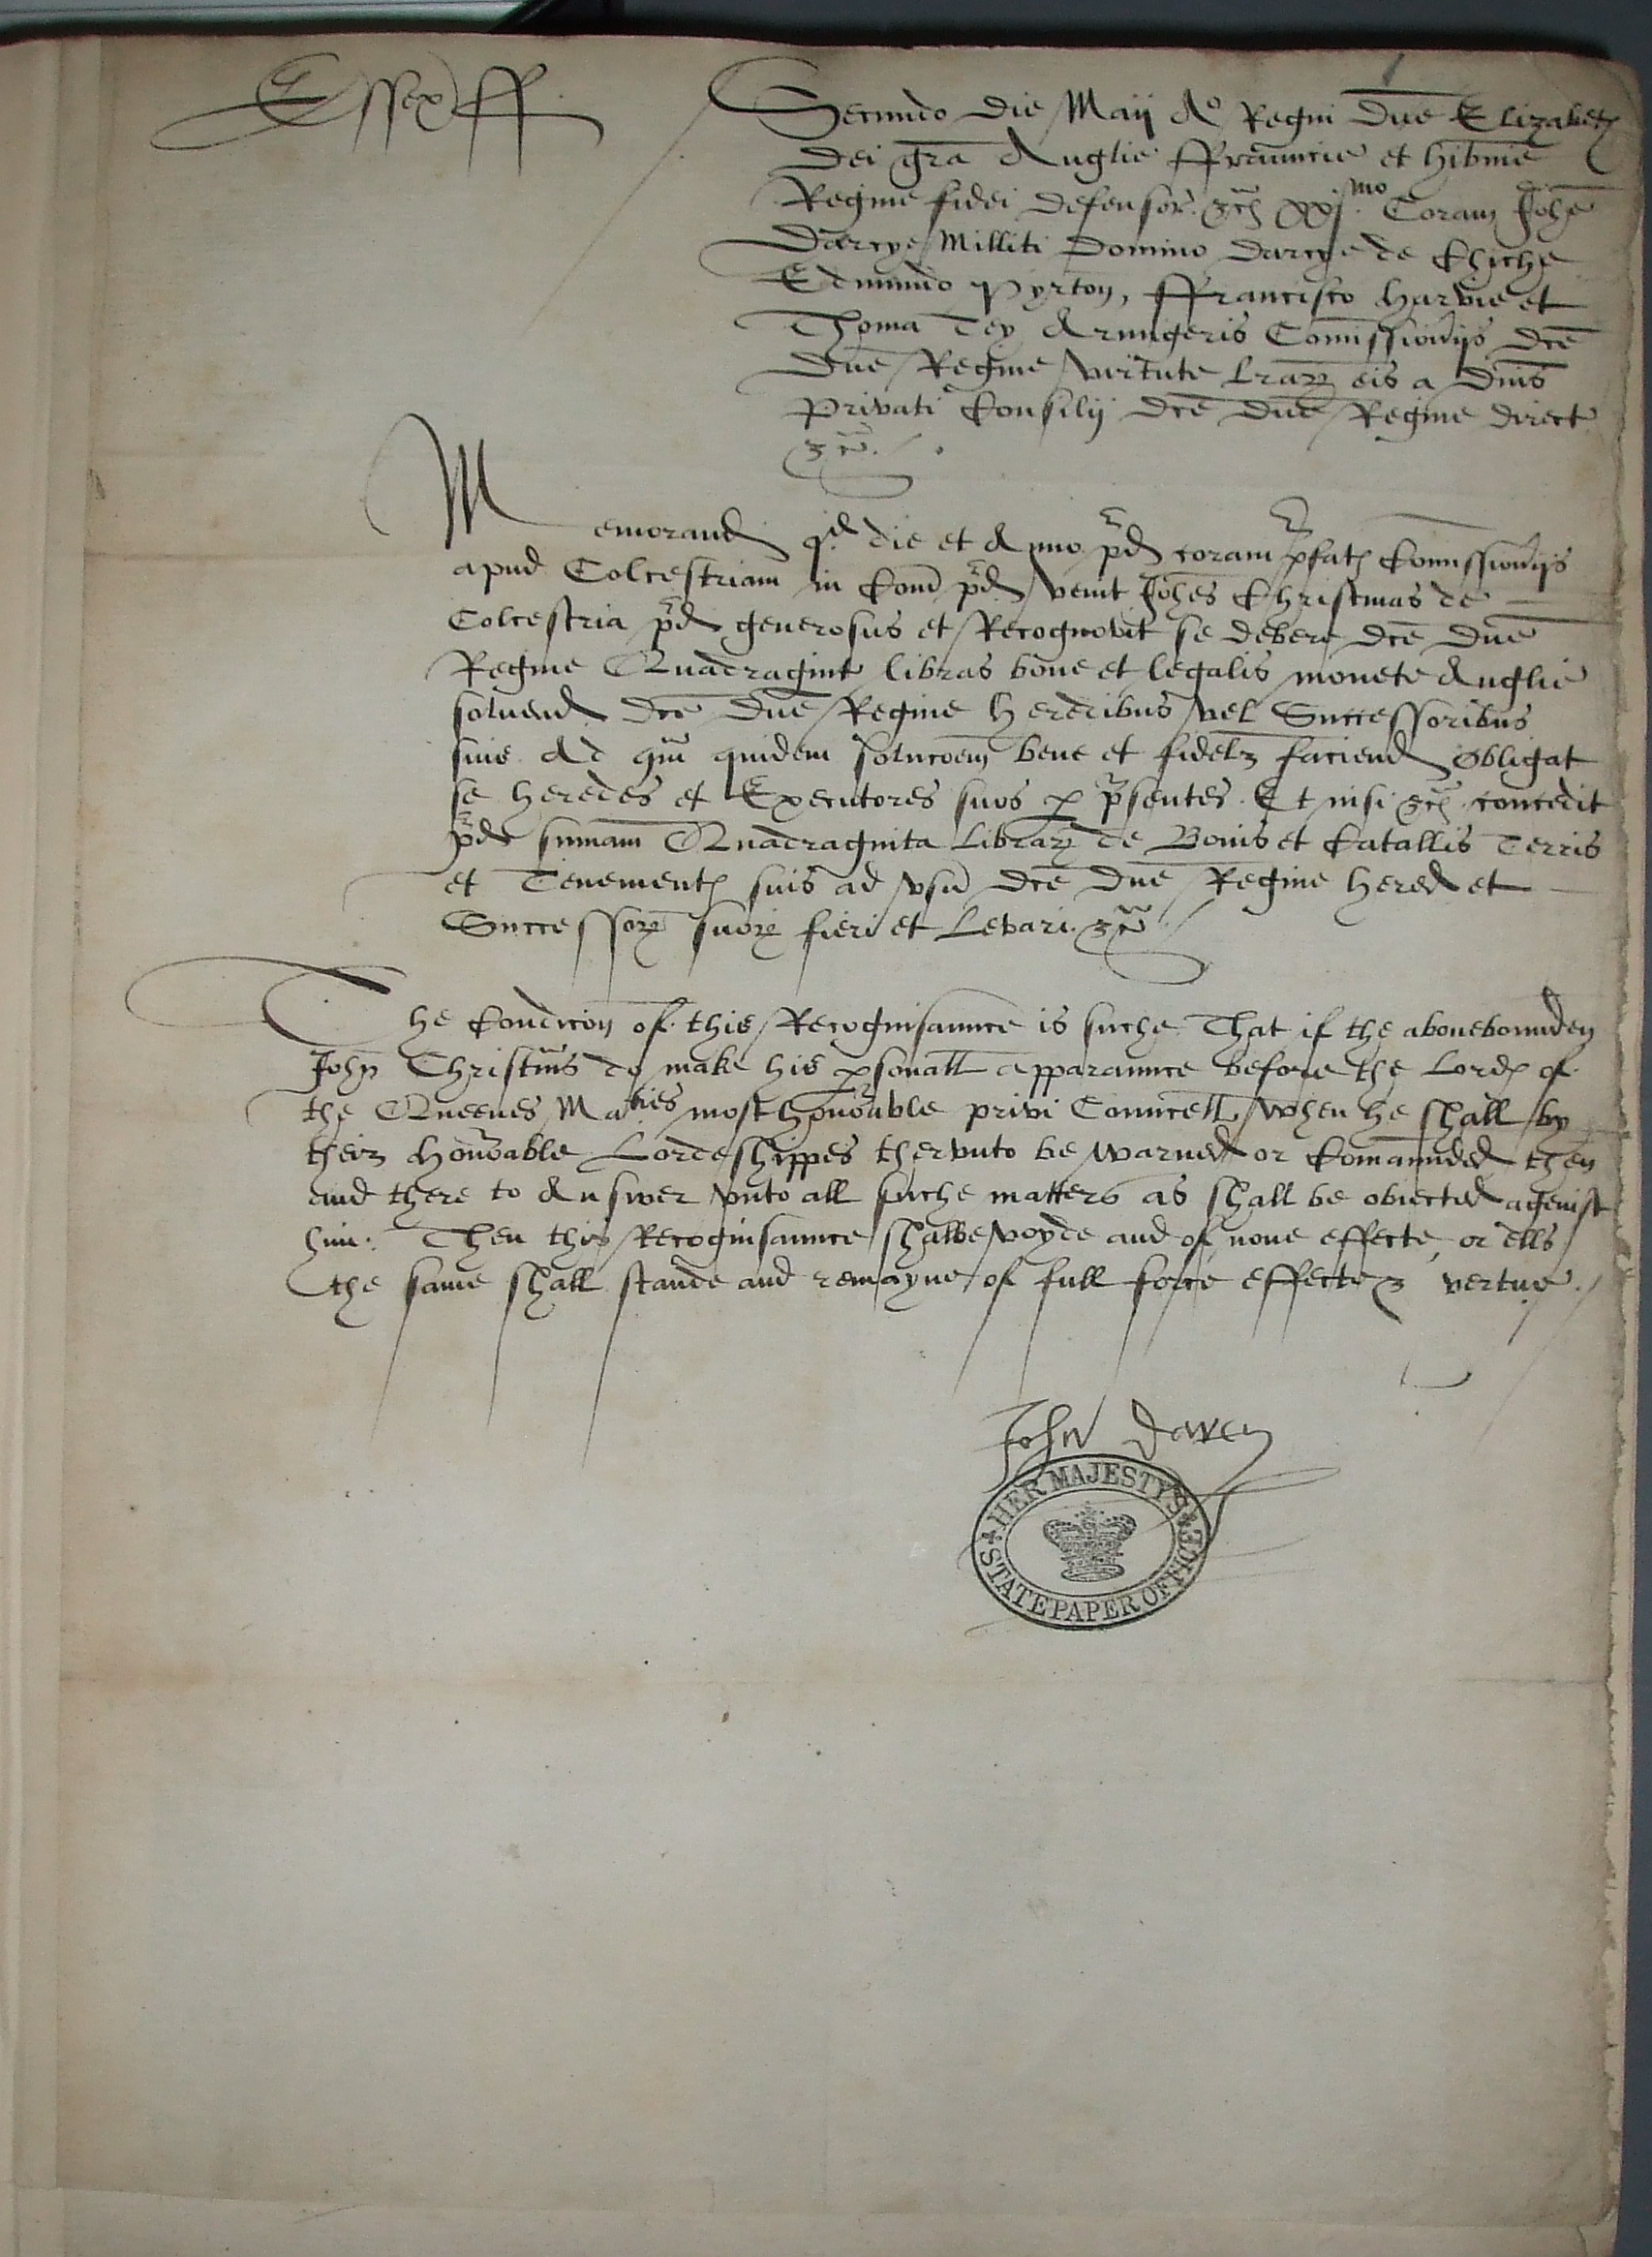 Essex ff
Secundo die Maij Ao Regni dne Elizabeth
dei gra Anglie ffrauncie et hibnie
Regine fidei defensor. &c xxjmo Coram Johe
Darcye Milliti Domino Darcye de Chiche
Edmundo Pyrton, ffrancisco Harvie et
Thoma Tey Armigeris Comissionijs dce
dne Regine virtute lrar eis a dnis
Privati Consilij dce dne Regine direct
&c.
Memorand qd die et Anno pd coram pfat Comissionijs
apud Colcestriam in Com pd venit Johes Christmas de
Colcestria pd generosus et Recognovit se debere dce dne
Regine Quadragint libras bone et legalis monete Anglie
soluend dce dne Regine heredibus vel Successoribus
suis Ad qm quidem solucoem bene et fidelz faciend Obligat
se heredes et Executores suos p psentes. Et nisi &c concedit
pd sumam Quadraginta librar de Bonis et Catallis Terris
et Tenement suis ad vsu dce dne Regine hered et
Successor suor fieri et levari. &c
The Condicon of this Recognisaunce is suche That if the abovebounden
John Christms do make his psonall apparaunce before the Lord of
the Queenes Maties most honorable privi Councell, when he shall by
their honorable Lordeshippes thervnto be warned or Comaunded then
and there to Answer vnto all suche matters as shall be obiected against
him: Then this Recognisaunce shalbe voyde and of none effecte, or ells
the same shall stande and remayne of full force effecte & vertue.
John Darcy
HER MAJESTY'S
STATE PAPER OFFICE